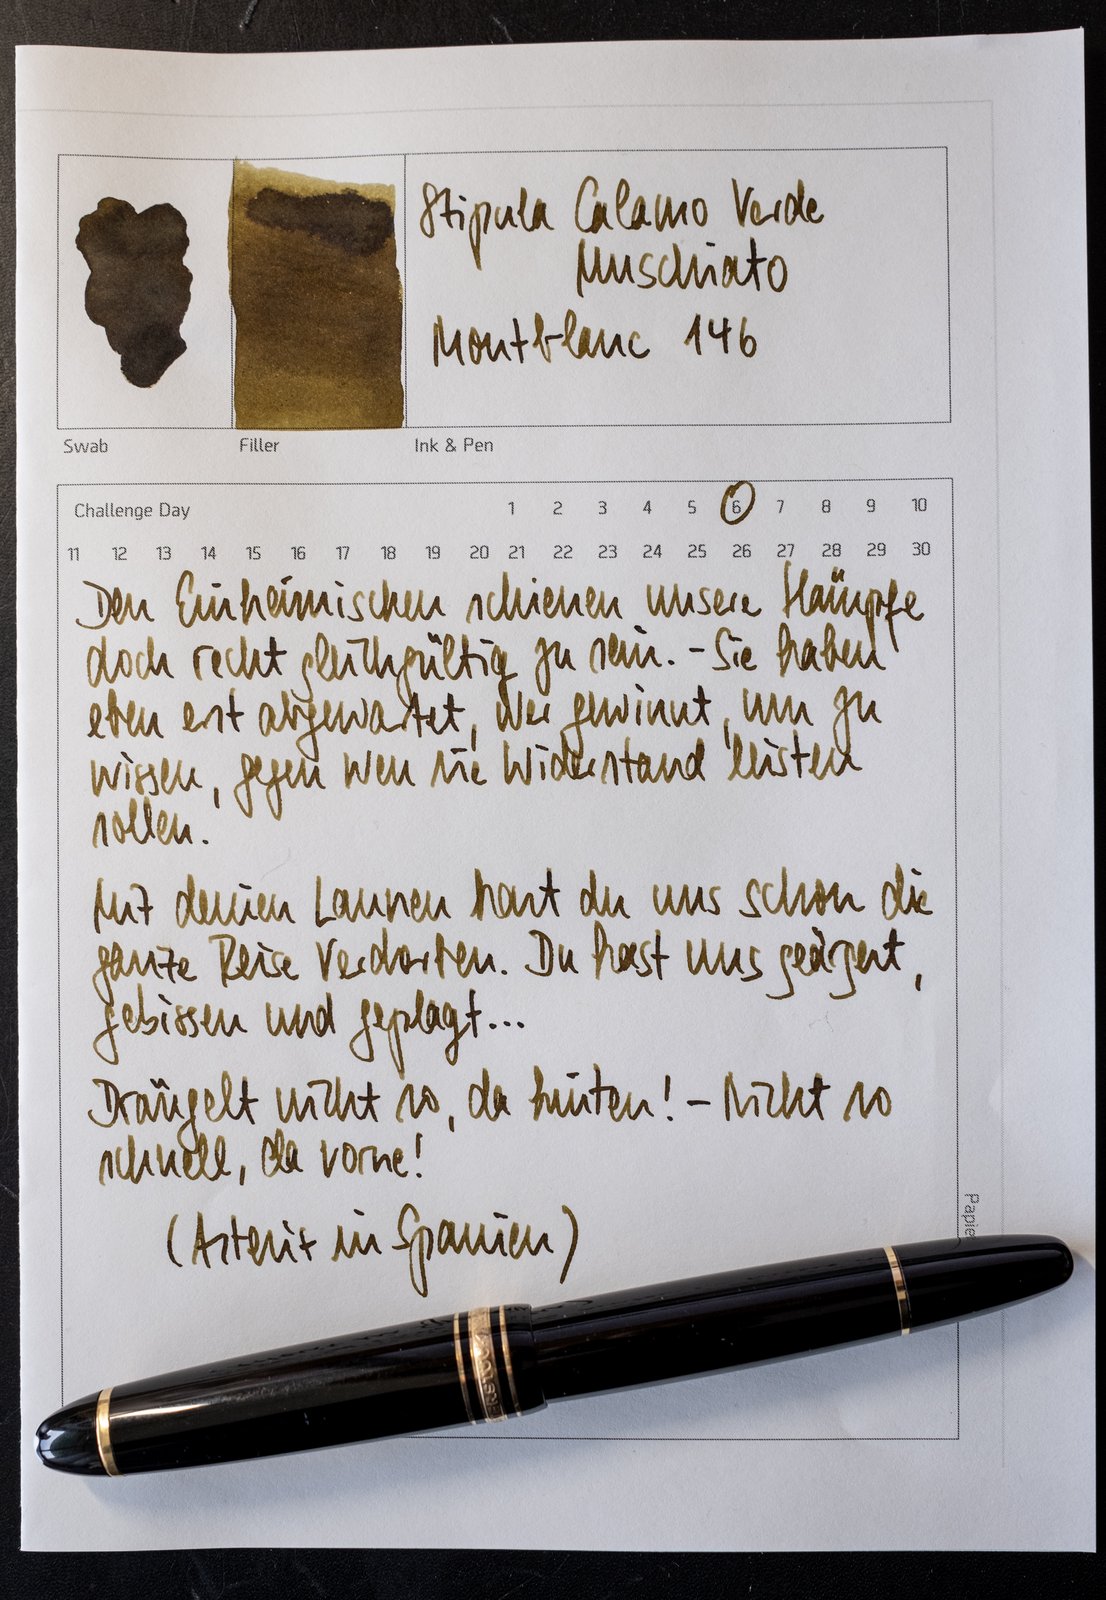 Stipula Calamo Verde
Muschiato
Montblanc 146
Swab
Filler
Ink & Pen
Challenge Day 1 2 3 4 5 6 7 8 9 10
11 12 13 14 15 16 17 18 19 20 21 22 23 24 25 26 27 28 29 30
Den Einheimischen schienen unsere Kämpfe
doch recht gleichgültig zu sein. - Sie haben
eben erst abgewartet, wer gewinnt, um zu
wissen, gegen wen sie Widerstand leisten
sollen.
Mit deinen Launen hast du uns schon die
ganze Reise verdorben. Du hast uns geärgert,
gebissen und geplagt...
Drängelt nicht so, da hinten! - Nicht so
schnell, da vorne!
(Asterix in Spanien)
Papie